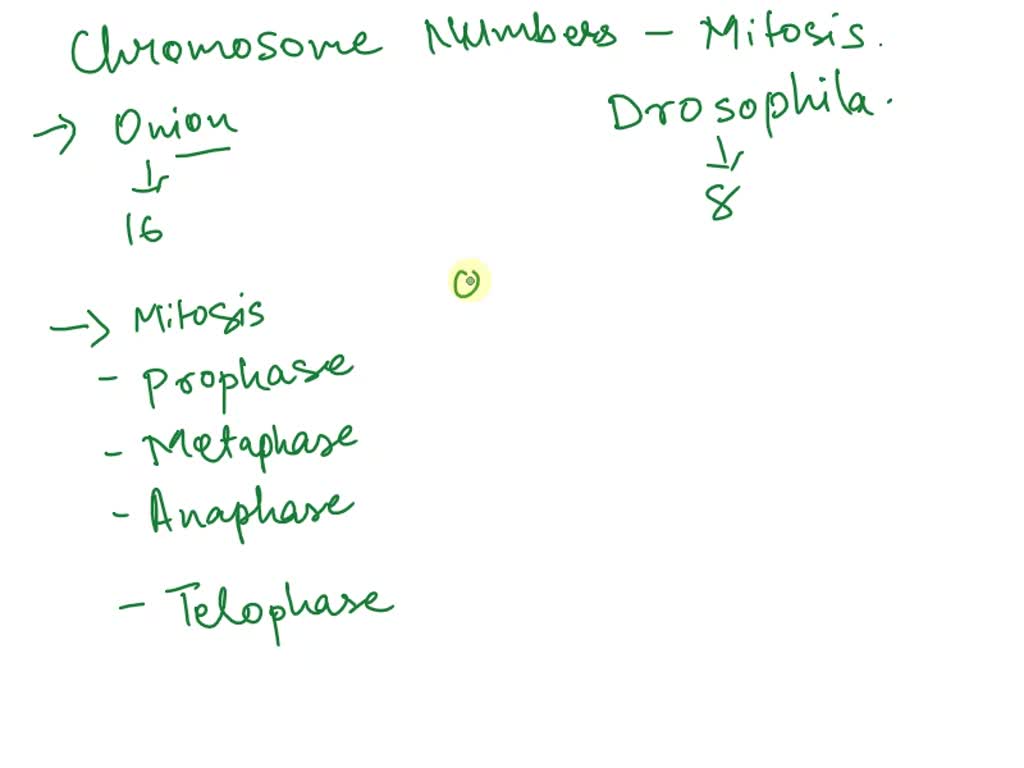 Chromosome Numbers - Mitosis.
→ Onion Drosophila.
16 8
→ Mitosis
- Prophase
- Metaphase
- Anaphase
- Telophase